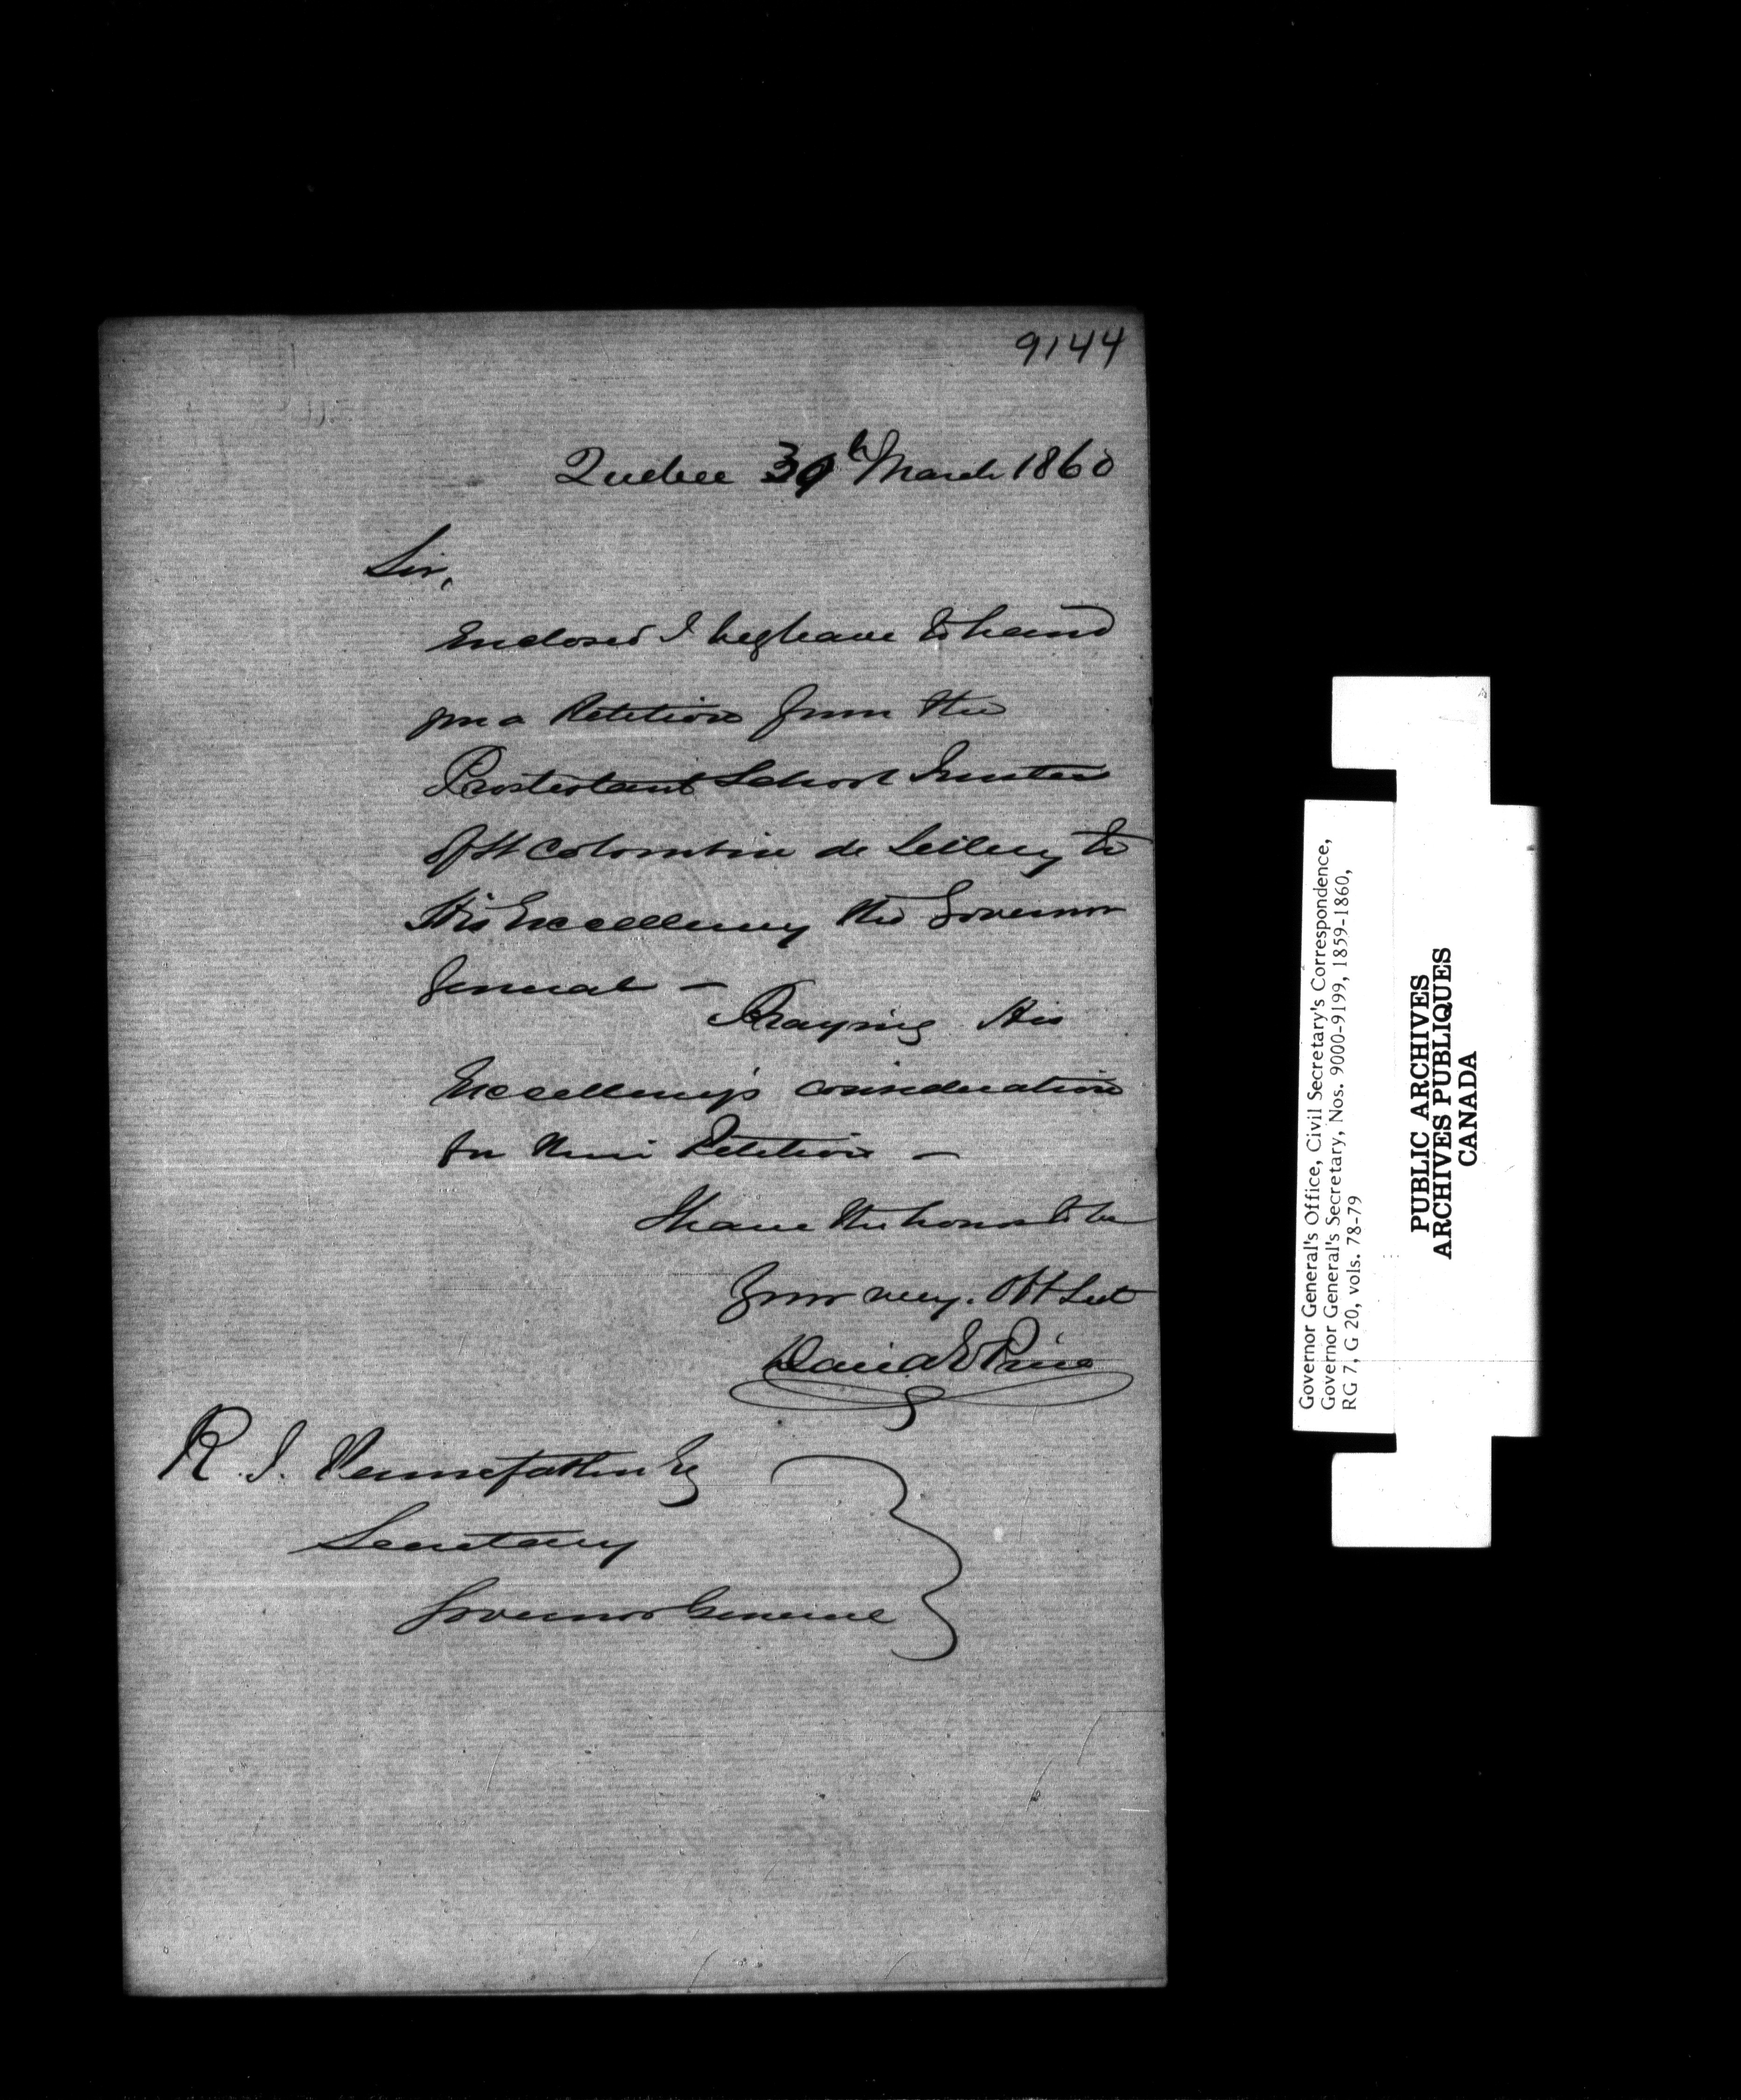 9144
Quebec 30th March 1860
Sir,
Enclosed I beg leave to hand
you a Petition from the
Protestant School Trustees
of St Colombin de Sillery to
His Excellency the Governor
General —
Praying His
Excellency's consideration
for their Petition —
I have the honor to be
Your very. Obt Svt
David E Price
R. T. Pennefather Esq
Secretary
Governor General
Governor General's Office, Civil Secretary's Correspondence,
Governor General's Secretary, Nos. 9000-9199, 1859-1860,
RG 7, G 20, vols. 78-79
PUBLIC ARCHIVES
ARCHIVES PUBLIQUES
CANADA